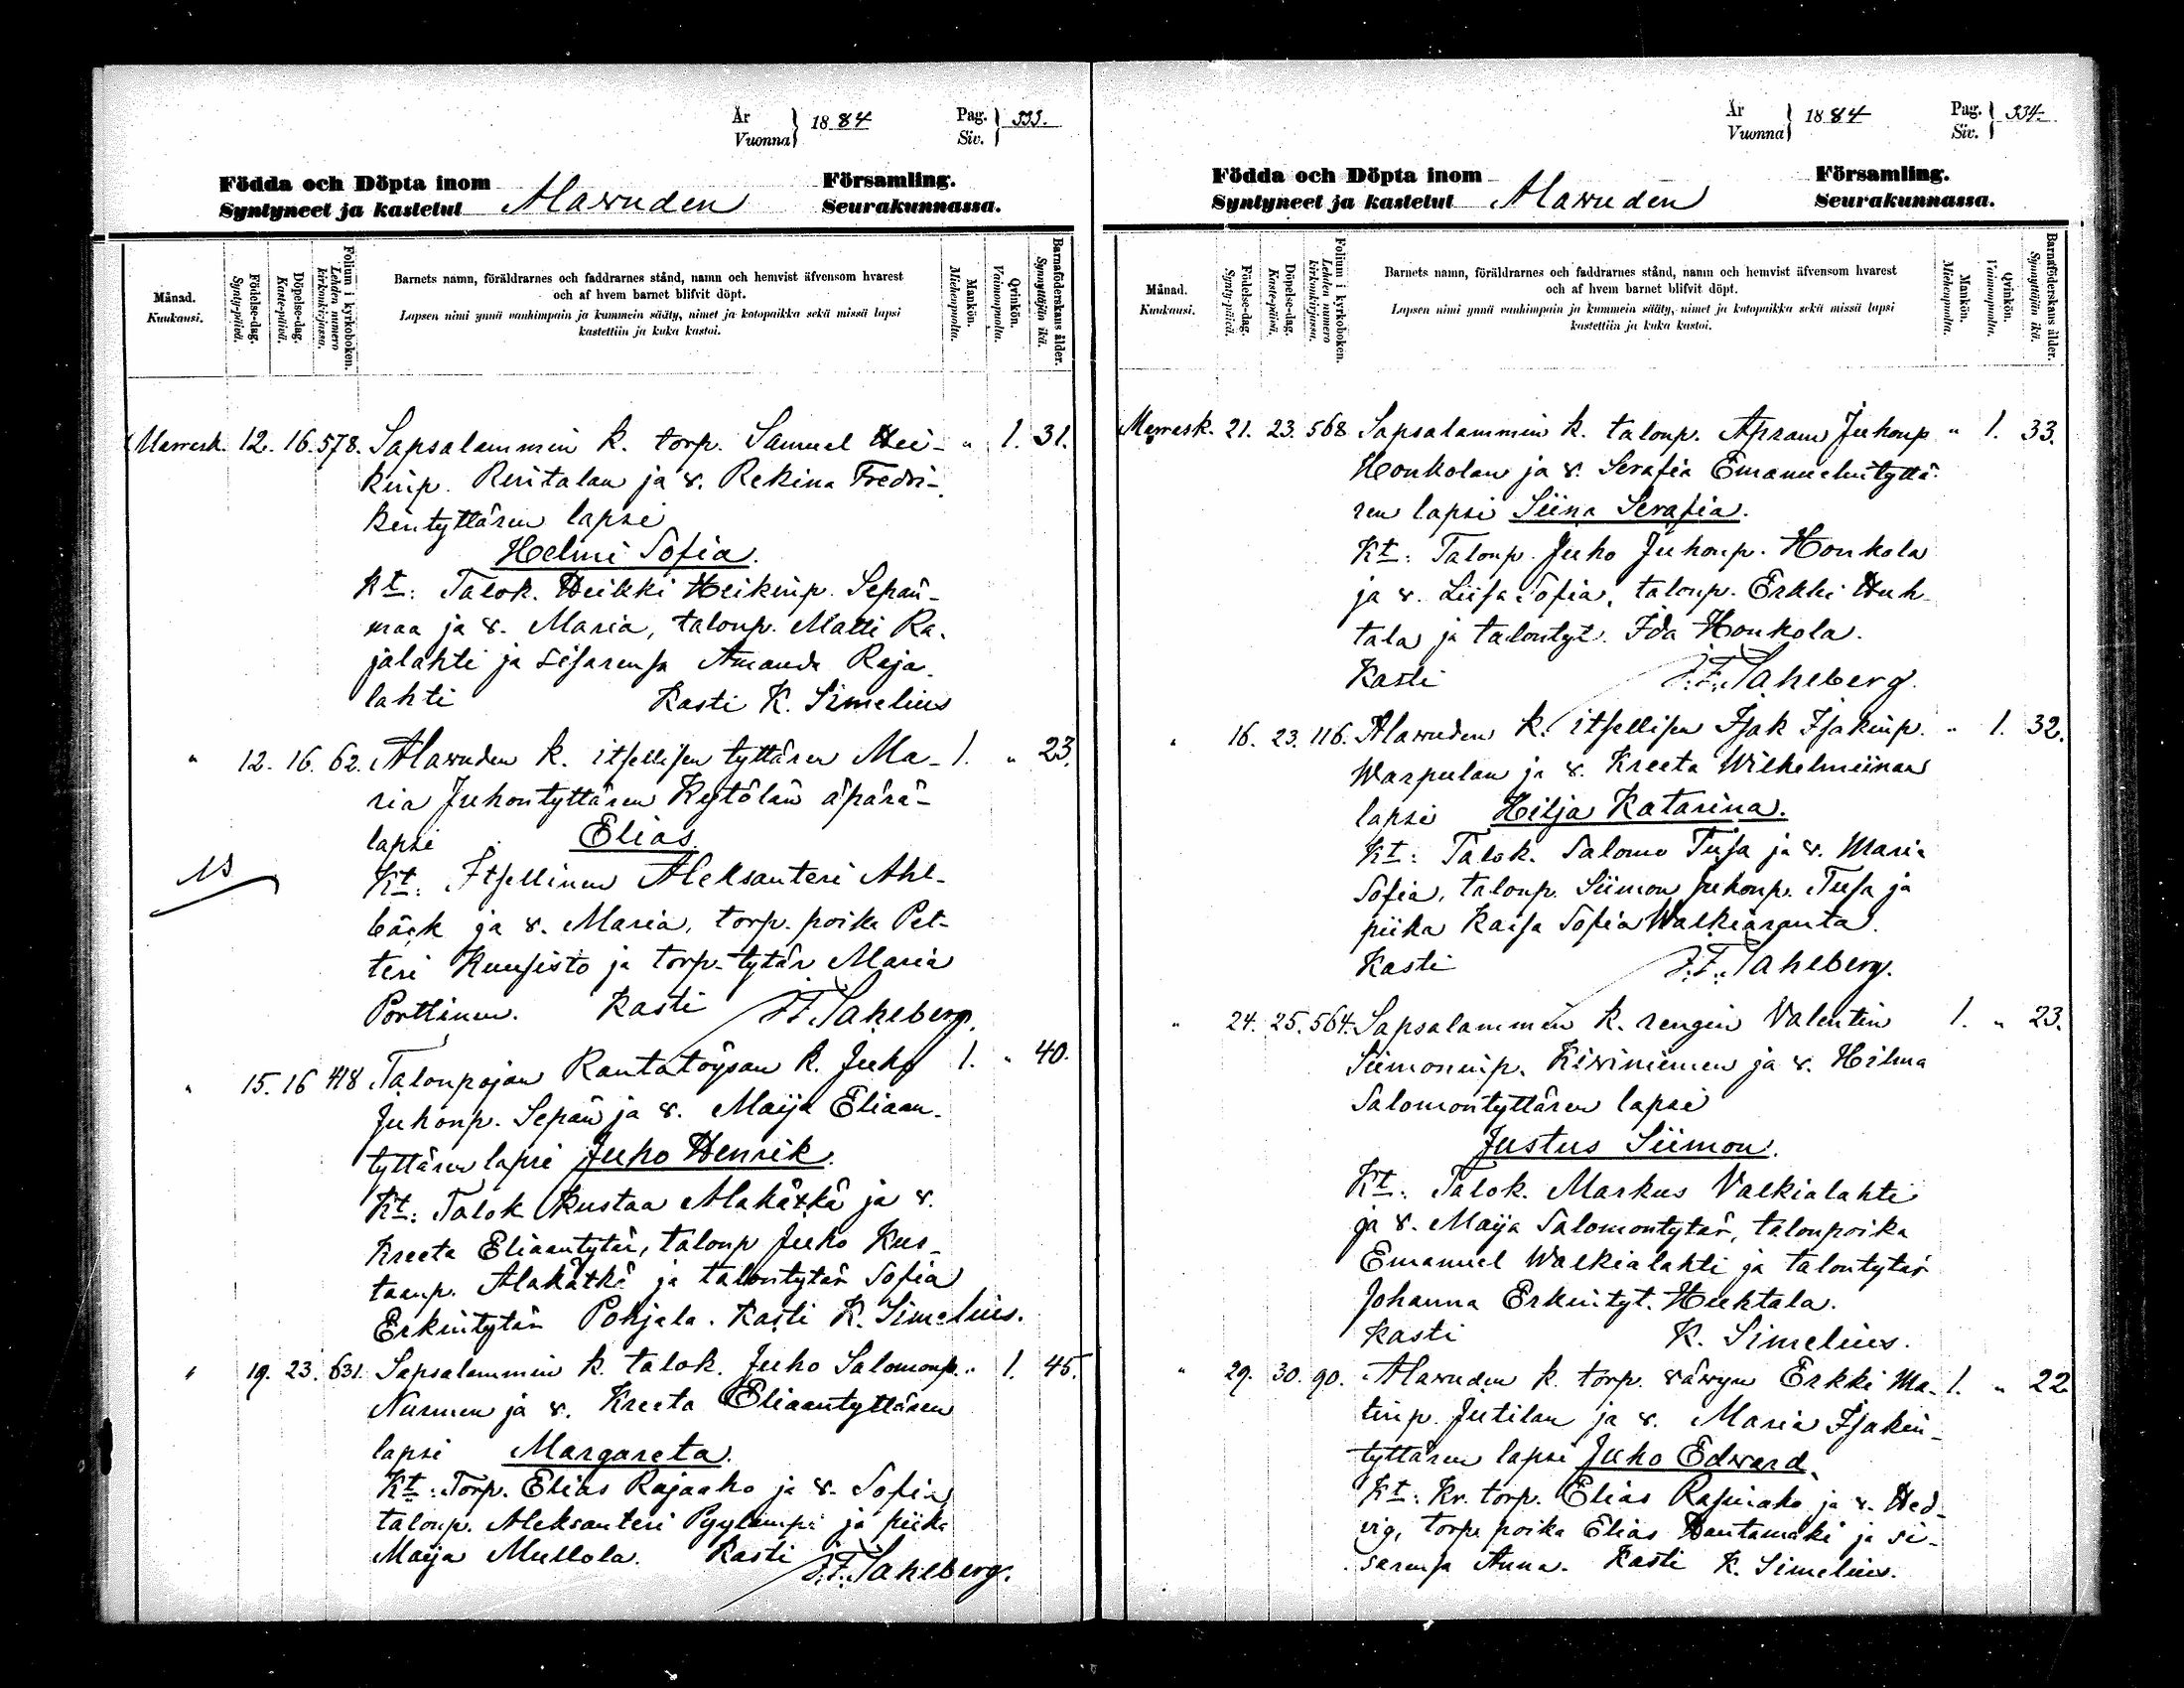 År
Vuonna } 1884 Pag.
Siv. } 333.
Födda och Döpta inom Församling.
Syntyneet ja kastetut Alawuden Seurakunnassa.
Månad.
Kuukausi.
Födelse-dag.
Synty-päivä.
Döpelse-dag.
Kaste-päivä.
Folium i kyrkoboken.
Lehden numero
kirkonkirjassa.
Barnets namn, föräldrarnes och faddrarnes stånd, namn och hemvist äfvensom hvarest
och af hvem barnet blifvit döpt.
Lapsen nimi ynnä vanhimpain ja kummein sääty, nimet ja kotopaikka sekä missä lapsi
kastettiin ja kuka kastoi.
Mankön.
Miehenpuolta.
Qvinkön.
Vaimonpuolta.
Barnaföderskans ålder.
Synnyttäjän ikä.
Marresk. 12. 16. 578. Sapsalammin k. torp. Samuel Hei- " 1. 31.
kinp. Rintalan ja v. Rekina Fredri-
kintyttären lapsi
Helmi Sofia.
Kt: Talok. Heikki Heikinp. Sepän-
maa ja v. Maria, talonp. Matti Ra-
jalahti ja sisarensa Amanda Raja-
lahti Kasti K. Simelius
" 12. 16. 62. Alawuden k. itsellisen tyttären Ma- 1. " 23.
ria Juhontyttären Kytölän äpärä-
lapsi Elias.
Kt: Itsellinen Aleksanteri Ahl-
bäck ja v. Maria, torp. poika Pet-
teri Kuusisto ja torp. tytär Maria
Porttinen. Kasti J.F. Sahlberg.
" 15. 16 418 Talonpojan Rantatöysän k. Juho 1. " 40.
Juhonp. Sepän ja v. Maija Eliaan-
tyttären lapsi Juho Henrik.
Kt: Talok Kustaa Alakätkä ja v.
Kreeta Eliaantytär, talonp Juho Kus-
taanp. Alakätkä ja talontytär Sofia
Erkintytär Pohjala. Kasti K. Simelius.
" 19. 23. 631. Sapsalammin k. talok. Juho Salomonp. " 1. 45.
Nurmen ja v. Kreeta Eliaantyttären
lapsi Margareta.
Kt: Torp. Elias Rajaaho ja v. Sofia,
talonp. Aleksanteri Pyylampi ja piika
Maija Mullola. Kasti J.F. Sahlberg.
År
Vuonna } 1884 Pag.
Siv. } 334.
Födda och Döpta inom Församling.
Syntyneet ja kastetut Alawuden Seurakunnassa.
Månad.
Kuukausi.
Födelse-dag.
Synty-päivä.
Döpelse-dag.
Kaste-päivä.
Folium i kyrkoboken.
Lehden numero
kirkonkirjassa.
Barnets namn, föräldrarnes och faddrarnes stånd, namn och hemvist äfvensom hvarest
och af hvem barnet blifvit döpt.
Lapsen nimi ynnä vanhimpain ja kummein sääty, nimet ja kotopaikka sekä missä lapsi
kastettiin ja kuka kastoi.
Mankön.
Miehenpuolta.
Qvinkön.
Vaimonpuolta.
Barnaföderskans ålder.
Synnyttäjän ikä.
Marresk. 21. 23. 568 Sapsalammin k. talonp. Apram Juhonp " 1. 33.
Honkolan ja v. Serafia Emanuelintyttä-
ren lapsi Siina Serafia.
Kt: Talonp. Juho Juhonp. Honkola
ja v. Liisa Sofia, talonp. Erkki Huh-
tala ja talontyt. Ida Honkola.
Kasti J.F. Sahlberg.
" 16. 23. 116. Alawuden k. itsellisen Isak Isakinp. " 1. 32.
Warpulan ja v. Kreeta Wilhelmiinan
lapsi Hilja Katarina.
Kt: Talok. Salomo Tusa ja v. Maria
Sofia, talonp. Siimon Juhonp. Tusa ja
piika Kaisa Sofia Walkiaranta.
Kasti J.F. Sahlberg.
" 24. 25. 564. Sapsalammin k. rengin Valentin 1. " 23.
Siimoninp. Kiviniemen ja v. Hilma
Salomontyttären lapsi
Justus Siimon.
Kt: Talok. Markus Valkialahti
ja v. Maija Salomontytär, talonpoika
Emanuel Walkialahti ja talontytär
Johanna Erkintyt. Huhtala.
Kasti K. Simelius.
" 29. 30. 90. Alawuden k. torp. vävyn Erkki Ma- 1. " 22
tinp. Jutilan ja v. Maria Isakin-
tyttären lapsi Juho Edward.
Kt: Kr. torp. Elias Rasinaho ja v. Hed-
vig, torp. poika Elias Hautamäki ja si-
sarensa Anna. Kasti K. Simelius.